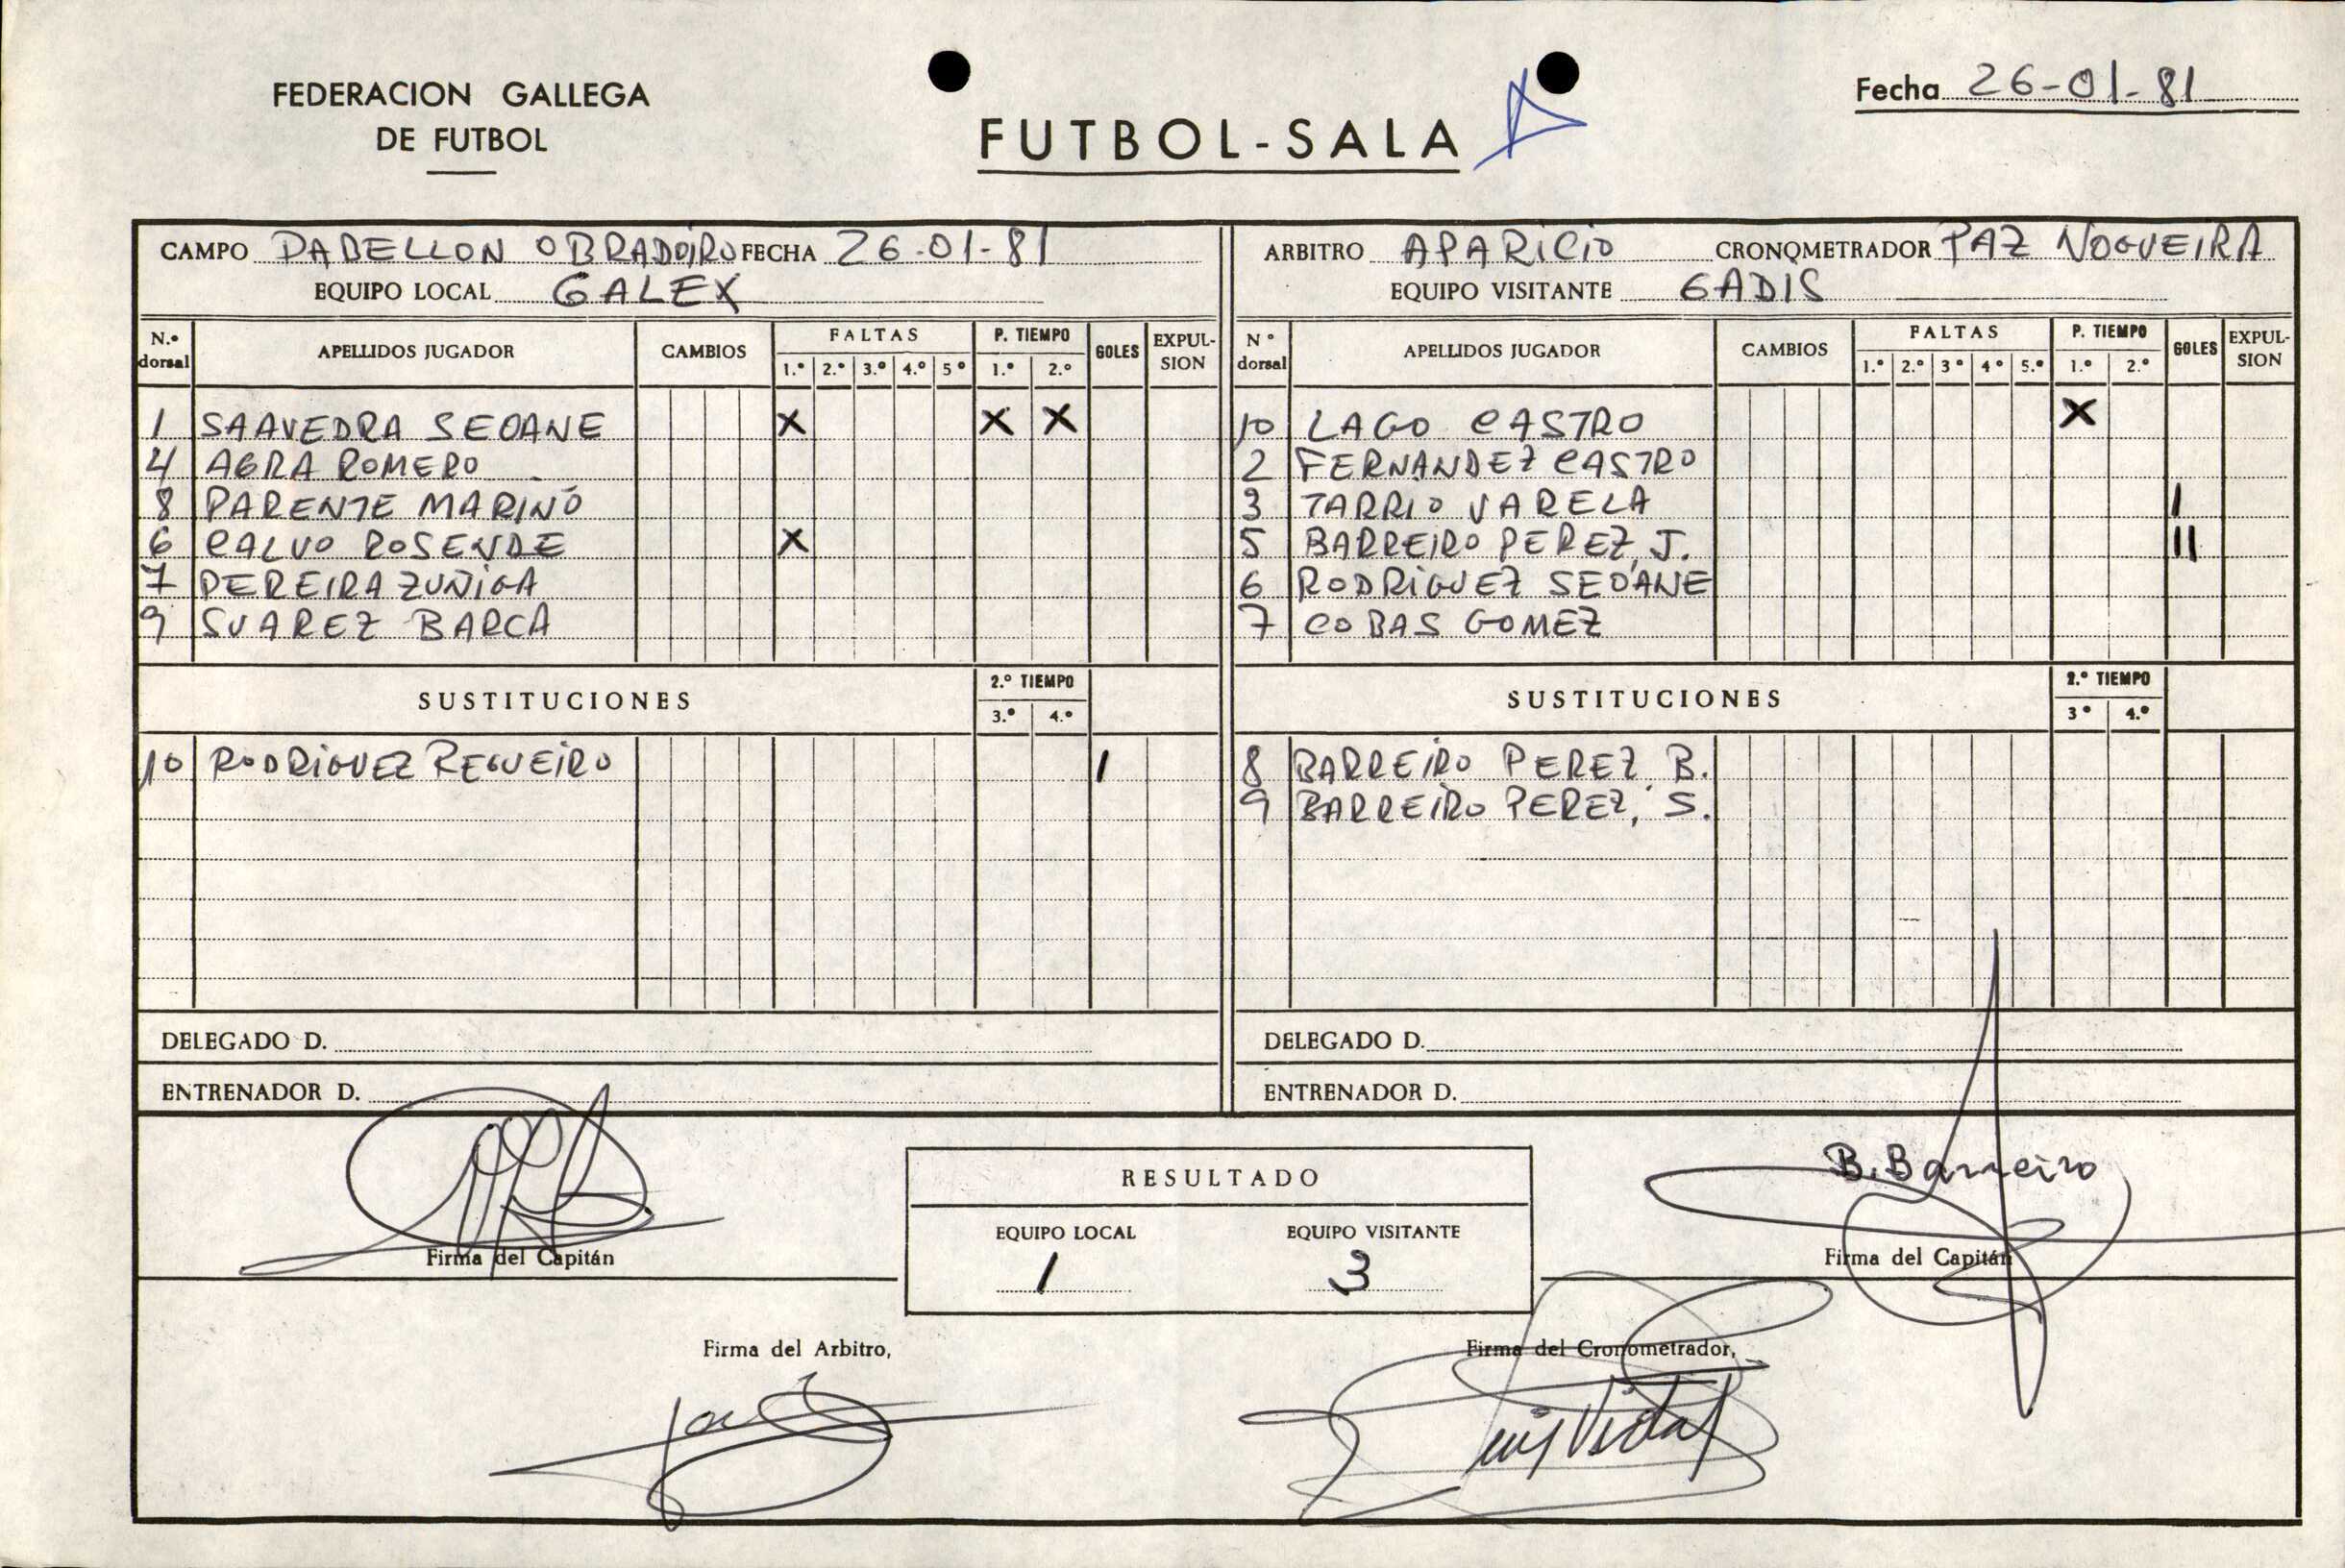 FEDERACION GALLEGA
DE FUTBOL
FUTBOL-SALA
Fecha 26-01-81
CAMPO PABELLON OBRADOIRO FECHA 26-01-81
EQUIPO LOCAL GALEX
N.º dorsal APELLIDOS JUGADOR CAMBIOS FALTAS 1.º 2.º 3.º 4.º 5º P. TIEMPO 1.º 2.º GOLES EXPUL-SION
1 SAAVEDRA SEOANE X X X
4 AGRA ROMERO
8 PARENTE MARIÑO
6 CALVO ROSENDE X
7 PEREIRA ZUÑIGA
9 SUAREZ BARCA
SUSTITUCIONES 2.º TIEMPO 3.º 4.º
10 RODRIGUEZ REGUEIRO I
DELEGADO D.
ENTRENADOR D.
ARBITRO APARICIO CRONOMETRADOR PAZ NOGUEIRA
EQUIPO VISITANTE GADIS
Nº dorsal APELLIDOS JUGADOR CAMBIOS FALTAS 1.º 2.º 3º 4º 5.º P. TIEMPO 1.º 2.º GOLES EXPUL-SION
10 LAGO CASTRO X
2 FERNANDEZ CASTRO
3 TARRIO VARELA I
5 BARREIRO PEREZ, J. II
6 RODRIGUEZ SEOANE
7 COBAS GOMEZ
SUSTITUCIONES 2.º TIEMPO 3º 4.º
8 BARREIRO PEREZ B.
9 BARREIRO PEREZ, S.
DELEGADO D.
ENTRENADOR D.
Firma del Capitán
RESULTADO
EQUIPO LOCAL EQUIPO VISITANTE
1 3
B. Barreiro
Firma del Capitán
Firma del Arbitro,
Firma del Cronometrador,
Luis Vidal